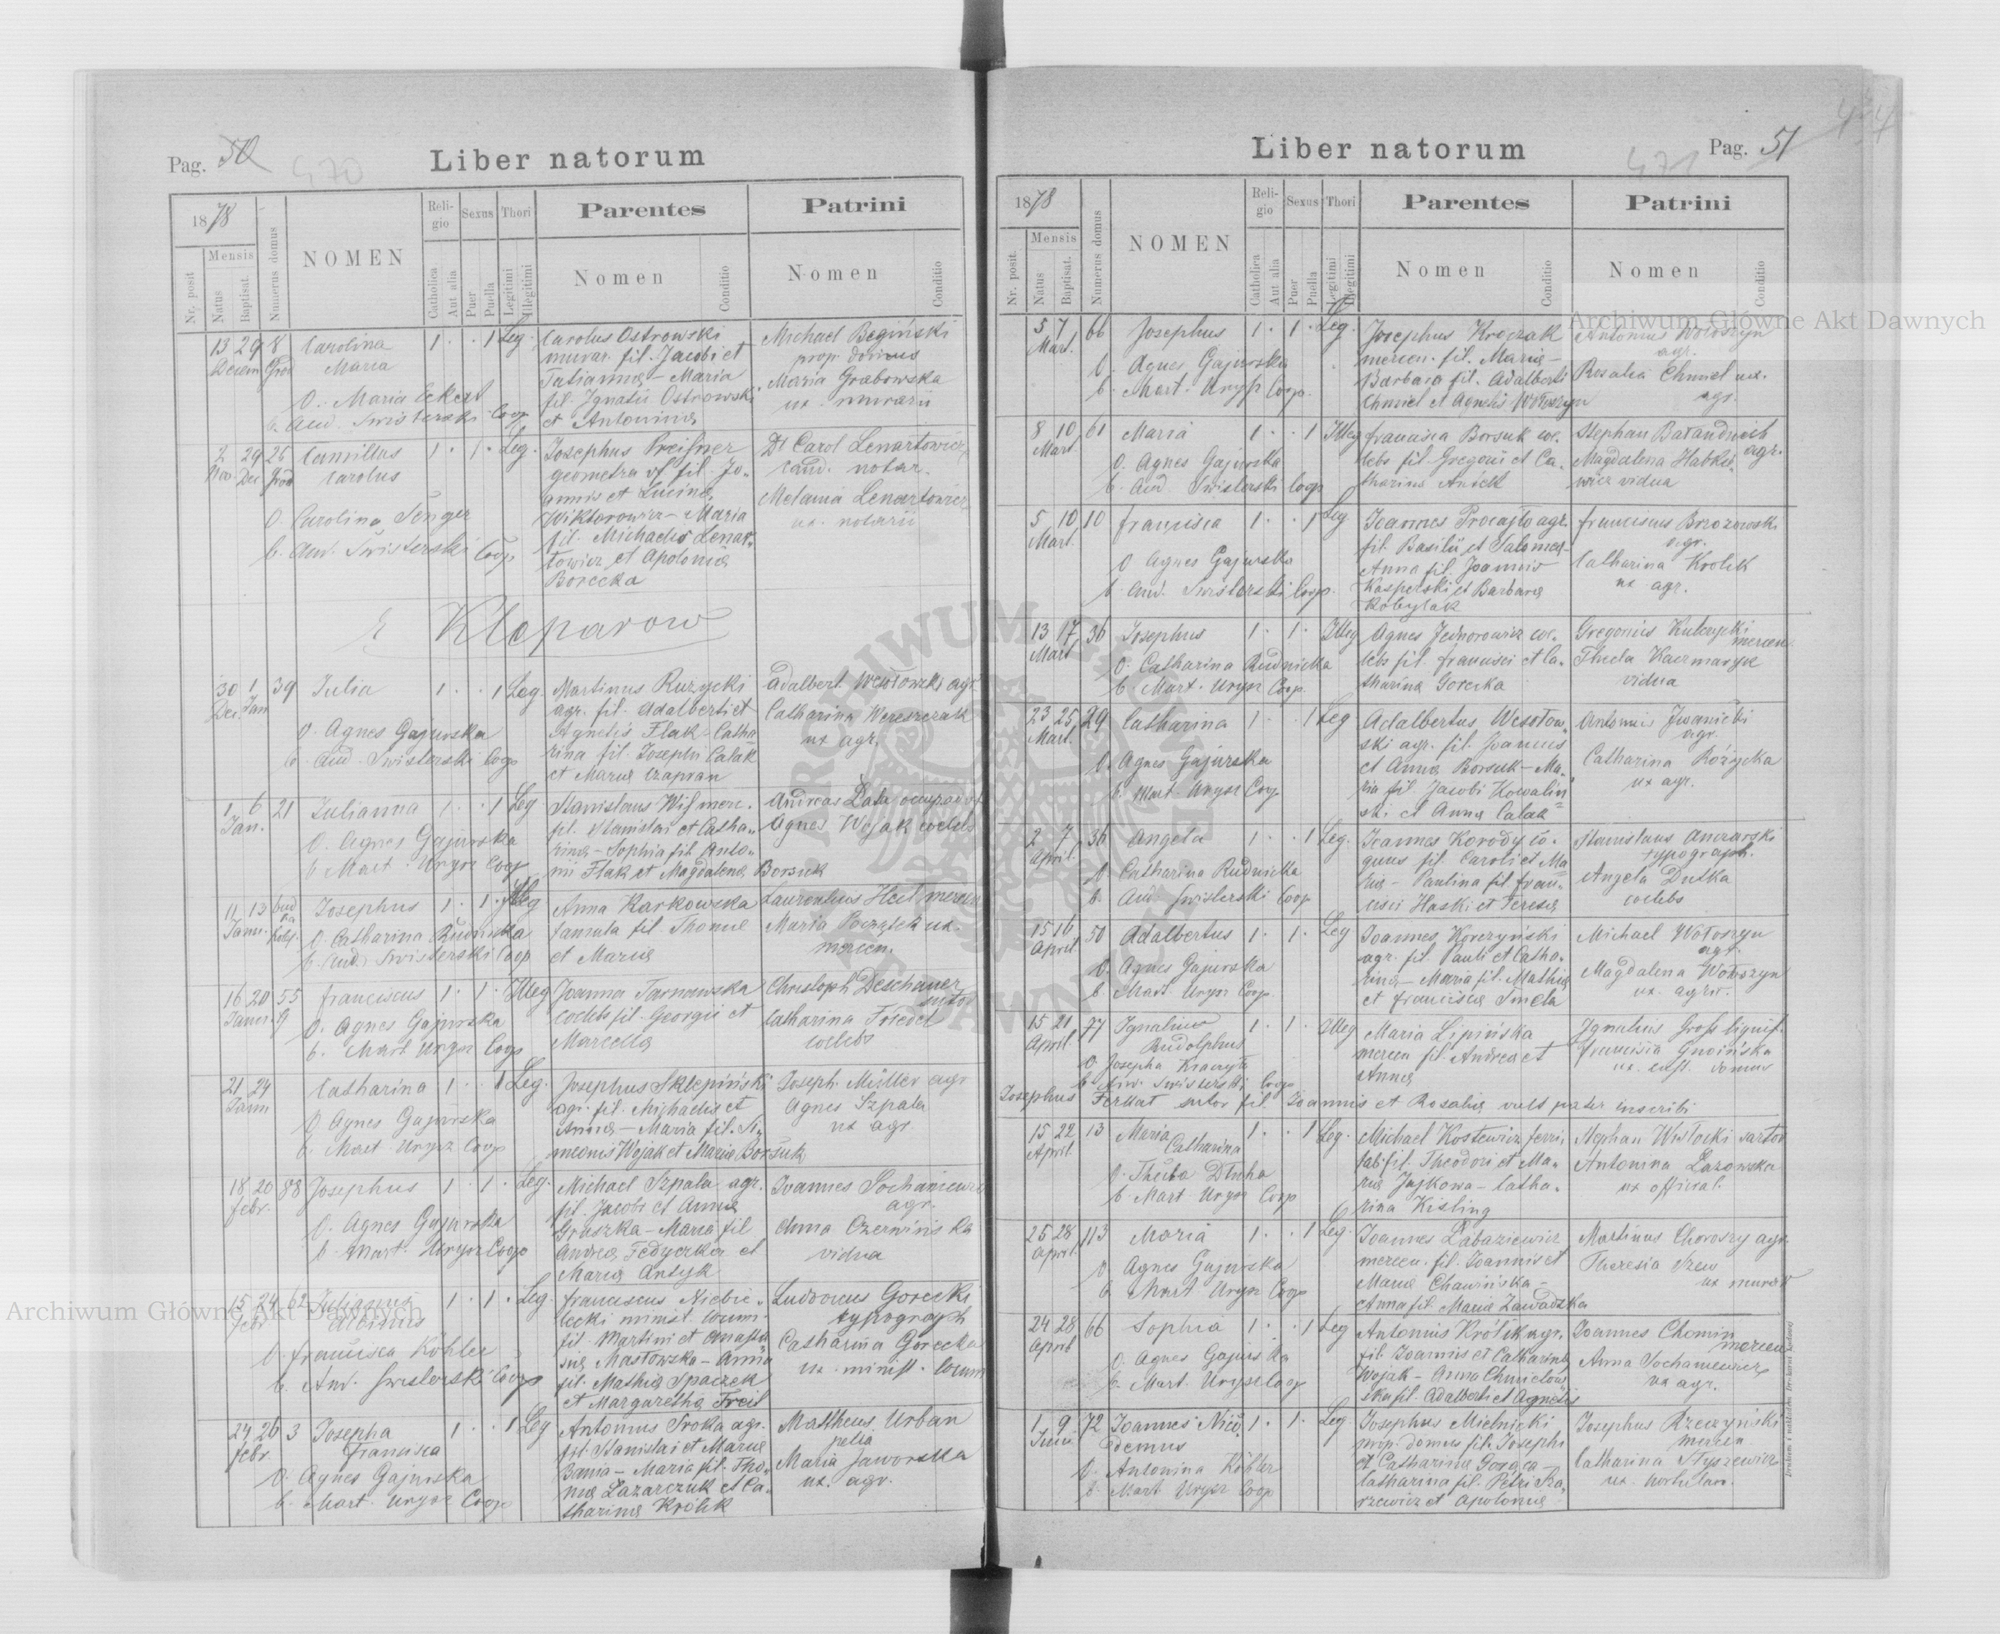 Pag. 50
470
Liber natorum
1878
Mensis
Nr. posit
Natus
Baptisat.
Numerus domus
NOMEN
Religio
Catholica
Aut alia
Sexus
Puer
Puella
Thori
Legitimi
Illegitimi
Parentes
Nomen
Conditio
Patrini
Nomen
Conditio
13 29 8 Carolina 1 · · 1 Leg. Carolus Ostrowski Michael Begiński
Decem Gród Maria murar. fil. Jacobi et prop. domus
Tatianna – Maria Maria Grabowska
O. Maria Eckert fil. Ignatii Ostrowski ux. murarii
b. Aud. Swisterski Coop et Antonina
2 29 26 Camillus 1 · 1 · Leg. Josephus Preisner Dr Carol Lenartowicz
Nov. Dec Gród Carolus geometra fil. Jo- cand. notar.
annis et Lucina Melania Lenartowicz
O. Carolina Tonger Wiktorowicz – Maria ux. notarii
b. Aud. Swisterski Coop fil. Michaelis Lenar-
towicz et Apolonia
Borecka
Kleparow
30 1 39 Julia 1 · · 1 Leg Martinus Ruzycki Adalbert Wesołowski agr.
Dec. Jan agr. fil. Adalberti et Catharina Wereszczak
O. Agnes Gajurska Agnetis Flak – Catha- ux agr.
b. Aud. Swisterski Coop rina fil. Josephi Calak
et Maria Czapran
1 6 21 Julianna 1 · · 1 Leg Stanislaus Wismerc.
Jan. fil. Stanislai et Catha- Agnes Wojak coelebs
O. Agnes Gajurska rina – Sophia fil. Anto-
b. Mart. Urysz Coop nii Flak et Magdalena Borsuk
11 13 Josephus 1 · 1 · Illeg Anna Karkowska Laurentius Hect mercen
Janu. O. Catharina Rudnicka famula fil. Thoma Maria Początek ux.
b. Aud. Swisterski Coop et Maria mercen.
16 20 55 Franciscus 1 · 1 · Illeg Joanna Tarnawska Christoph Deschauer
Januar. 9 coelebs fil. Georgii et sutor
O. Agnes Gajurska Marcella Catharina Friedel
b. Mart Urysz Coop coelebs
21 24 Catharina 1 · · 1 Leg. Josephus Sklepiński Joseph Müller agr
Janu agr. fil. Michaelis et Agnes Szpala
O. Agnes Gajurska Anna – Maria fil. Si- ux agr.
b. Mart. Urysz Coop meonis Wojak et Maria Borsuk
18 20 88 Josephus 1 · 1 · Leg. Michael Szpala agr. Joannes Sochaniewicz
febr. fil. Jacobi et Anna agr.
O. Agnes Gajurska Gruszka – Maria fil Anna Czerwińska
b. Mart. Urysz Coop Andrea Fedyczka et vidua
Maria Antyk
15 24 62 Julianus 1 · 1 · Leg. Franciscus Niebie- Ludovicus Gorecki
febr Albinus lecki minist. Loum. typograph
O. Francisca Köhler fil. Martini et Anasta- Catharina Gorecka
b. Aud. Swisterski Coop sia Masłowska – Anna ux. minist. Loum
fil. Mathia Spaczek
et Margaretha Freit
24 26 3 Josepha 1 · · 1 Leg Antonius Troka agr. Mattheus Urban
febr. Francisca fil. Stanislai et Maria pelio
O. Agnes Gajurska Bania – Maria fil. Tho- Maria Jaworska
b. Mart. Urysz Coop ma Łazarczuk et Ca- ux. agr.
tharina Królik
Liber natorum
471
Pag. 51
1878
Mensis
Nr. posit.
Natus
Baptisat.
Numerus domus
NOMEN
Religio
Catholica
Aut alia
Sexus
Puer
Puella
Thori
Legitimi
Illegitimi
Parentes
Nomen
Conditio
Patrini
Nomen
Conditio
5 7 66 Josephus 1 · 1 · Leg. Josephus Kroczak Antonius Wołoszyn
Mart. mercen. fil. Maria – agr.
O. Agnes Gajurska Barbara fil. Adalberti Rosalia Chmiel ux.
b. Mart. Urysz Coop. Chmiel et Agnetis Wołoszyn agr.
8 10 61 Maria 1 · · 1 Illeg Francisca Borsuk coe- Stephan Batandiuch
Mart. lebs fil. Gregorii et Ca- agr.
O. Agnes Gajurska tharina Anick Magdalena Habkie-
b. Aud Swisterski Coop wicz vidua
5 10 10 Francisca 1 · · 1 Leg Joannes Procajło agr. Franciscus Brzozowski
Mart. fil. Basilii et Salomea – agr.
O. Agnes Gajurska Anna fil. Joannis Catharina Krolik
b. Aud. Swisterski Coop. Kasperski et Barbara ux agr.
Kobylak
13 17 36 Josephus 1 · 1 · Illeg Agnes Jednorowicz coe- Gregorius Kulczycki
Mart lebs fil. Francisci et Ca- mercen
O. Catharina Rudnicka tharina Gorecka Thecla Kaczmaryk
b. Mart. Urysz Coop. vidua
23 25 29 Catharina 1 · · 1 Leg Adalbertus Wesołow- Antonius Iwanicki
Mart. ski agr. fil. Joannis agr.
O. Agnes Gajurska et Anna Borsuk – Ma- Catharina Różycka
b. Mart. Urysz Coop ria fil. Jacobi Kowalin ux agr.
ski et Anna Calak
2 7 36 Angela 1 · · 1 Leg. Joannes Korody co- Stanislaus Anczarski
April. quus fil. Caroli et Ma typograph.
O. Catharina Rudnicka ria – Paulina fil Fran- Angela Dutka
b. Aud. Swisterski Coop cisci Haski et Teresa coelebs
15 16 50 Adalbertus 1 · 1 · Leg Joannes Korczyński Michael Wołoszyn
April agr. fil. Pauli et Catha- agr.
O. Agnes Gajurska rina – Maria fil. Mathia Magdalena Wołoszyn
b. Mart. Urysz Coop. et Francisca Smela ux. agrar.
15 21 77 Ignatius 1 · 1 · Illeg Maria Lipińska Ignatius Gross lignif.
April. Rudolphus mercen fil. Andrea et Francisca Gnoińska
O. Josepha Kraczyła Anna ux. cust. domus
b. Aud. Swisterski Coop
Josephus Ferkat sutor fil. Joannis et Rosalia vult pater inscribi
15 22 13 Maria 1 · · 1 Leg. Michael Kostewicz ferri- Stephan Wisłocki sartor
April. Catharina fab. fil. Theodori et Ma- Antonina Lazowska
O. Thecla Dłuha ria Jaskowa – Catha- ux official.
b. Mart Urysz Coop rina Kisling
25 28 113 Maria 1 · · 1 Leg. Joannes Łabaziewicz Martinus Choroszy agr.
April. mercen. fil. Joannis et Theresia Szew
O. Agnes Gajurska Maria Chawińska – ux murar
b. Mart Urysz Coop Anna fil. Maria Zawadzka
24 28 66 Sophia 1 · · 1 Leg Antonius Królik agr. Joannes Chomin
April fil. Joannis et Catharina mercen
O. Agnes Gajurska Wojak – Anna Chmielow Anna Sochaniewicz
b. Mart. Urysz Coop ska fil. Adalberti et Agnetis ux agr.
1 9 72 Joannes Nico- 1 · 1 · Leg. Josephus Mielnicki Josephus Rzeczyński
demus prop. domus fil. Josephi mercen
O. Antonina Köhler et Catharina Goraca – Catharina Styszewicz
b. Mart Urysz Coop Catharina fil. Petri Ka-
rzewicz et Apolonia
Archiwum Główne Akt Dawnych
Archiwum Główne Akt Dawnych
ARCHIWUM GŁÓWNE AKT DAWNYCH